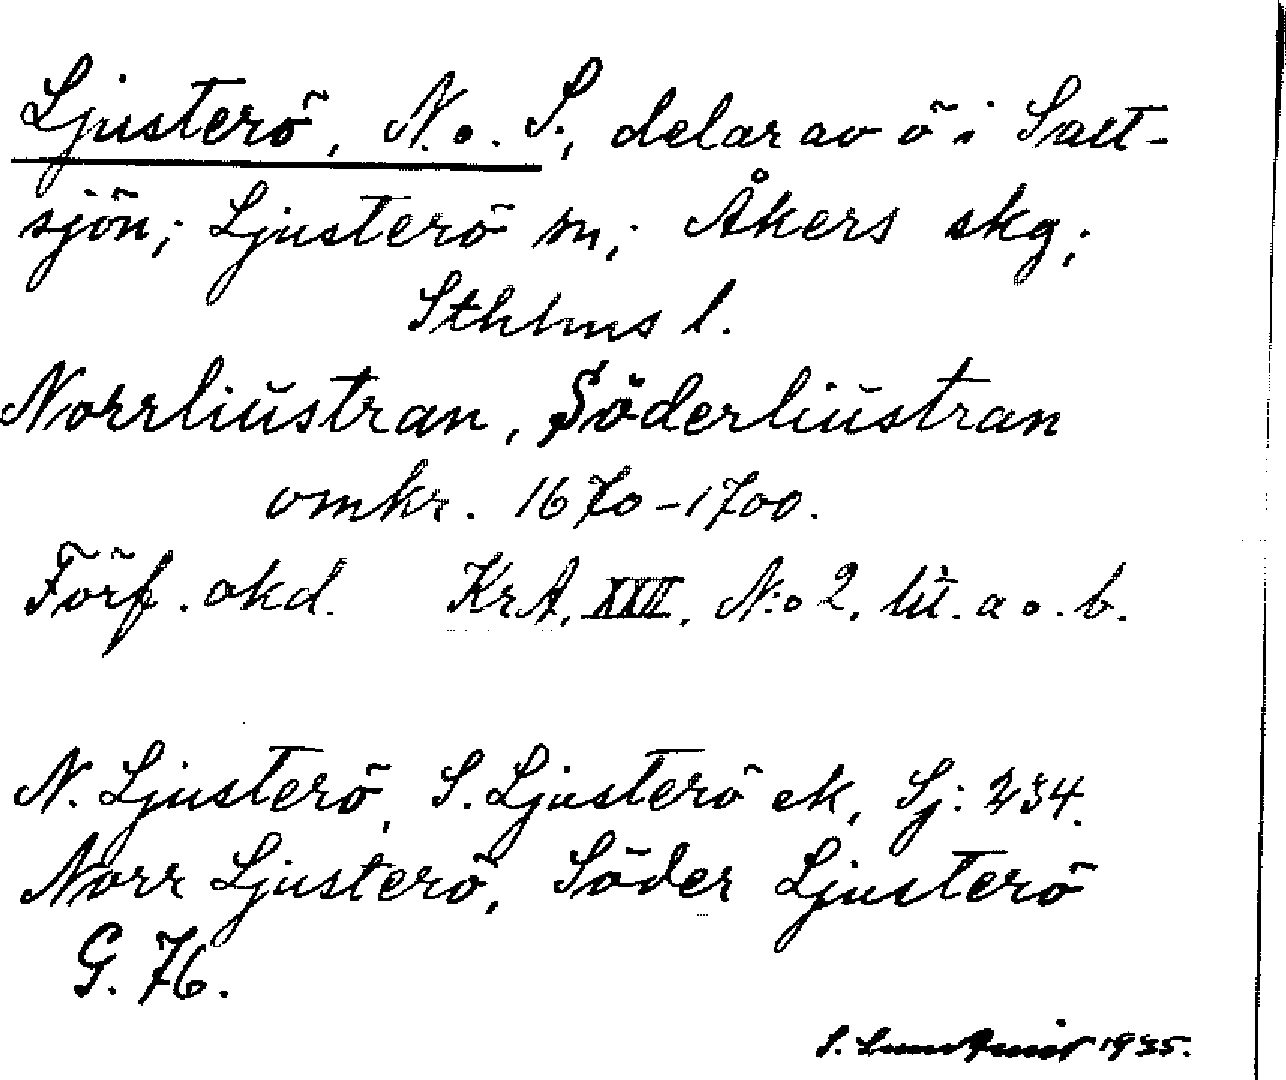 Ljusterö, N. o. S., delar av ö i Salt-
sjön; Ljusterö sn; Åkers skg;
Sthlms l.
Norrliustran, Söderliustran
omkr. 1670-1700.
Förf. okd. KrA. XXII. N:o 2. litt. a o. b.
N. Ljusterö, S. Ljusterö ek, Sj: 234.
Norr Ljusterö, Söder Ljusterö
G. 76.
S. 1935.